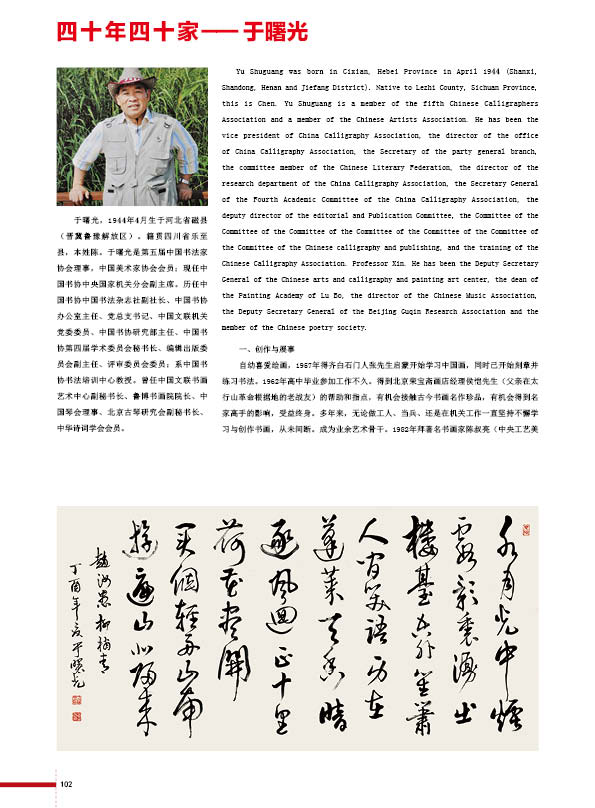 四十年四十家——于曙光
Yu Shuguang was born in Cixian, Hebei Province in April 1944 (Shanxi,
Shandong, Henan and Jiefang District). Native to Lezhi County, Sichuan Province,
this is Chen. Yu Shuguang is a member of the fifth Chinese Calligraphers
Association and a member of the Chinese Artists Association. He has been the
vice president of China Calligraphy Association, the director of the office
of China Calligraphy Association, the Secretary of the party general branch,
the committee member of the Chinese Literary Federation, the director of the
research department of the China Calligraphy Association, the Secretary General
of the Fourth Academic Committee of the China Calligraphy Association, the
deputy director of the editorial and Publication Committee, the Committee of the
Committee of the Committee of the Committee of the Committee of the Committee of
the Committee of the Chinese calligraphy and publishing, and the training of the
Chinese Calligraphy Association. Professor Xin. He has been the Deputy Secretary
General of the Chinese arts and calligraphy and painting art center, the dean of
the Painting Academy of Lu Bo, the director of the Chinese Music Association,
the Deputy Secretary General of the Beijing Guqin Research Association and the
member of the Chinese poetry society.
于曙光，1944年4月生于河北省磁县
（晋冀鲁豫解放区）。籍贯四川省乐至
县，本姓陈。于曙光是第五届中国书法家
协会理事，中国美术家协会会员；现任中
国书协中央国家机关分会副主席。历任中
国书协中国书法杂志社副社长、中国书协
办公室主任、党总支书记、中国文联机关
党委委员、中国书协研究部主任、中国书
协第四届学术委员会秘书长、编辑出版委
员会副主任、评审委员会委员；系中国书
协书法培训中心教授。曾任中国文联书画
艺术中心副秘书长、鲁博书画院院长、中
国琴会理事、北京古琴研究会副秘书长、
中华诗词学会会员。
一、创作与履事
自幼喜爱绘画，1957年得齐白石门人张先生启蒙开始学习中国画，同时己开始刻章并
练习书法。1962年高中毕业参加工作不久。得到北京荣宝斋画店经理侯恺先生（父亲在太
行山革命根据地的老战友）的帮助和指点，有机会接触古今书画名作珍品，有机会得到名
家高手的影响，受益终身。多年来，无论做工人、当兵、还是在机关工作一直坚持不懈学
习与创作书画，从未间断。成为业余艺术骨干。1982年拜著名书画家陈叔亮（中央工艺美
水月光中煙
霞影裏湧出
樓臺空外笙簫
人間笑語身在
蓬萊天香暗
逐風迴正十里
荷花盡開
買個輕舟山南
遊遍山北歸來
趙汝愚柳梢青
丁酉年夏于曙光
102